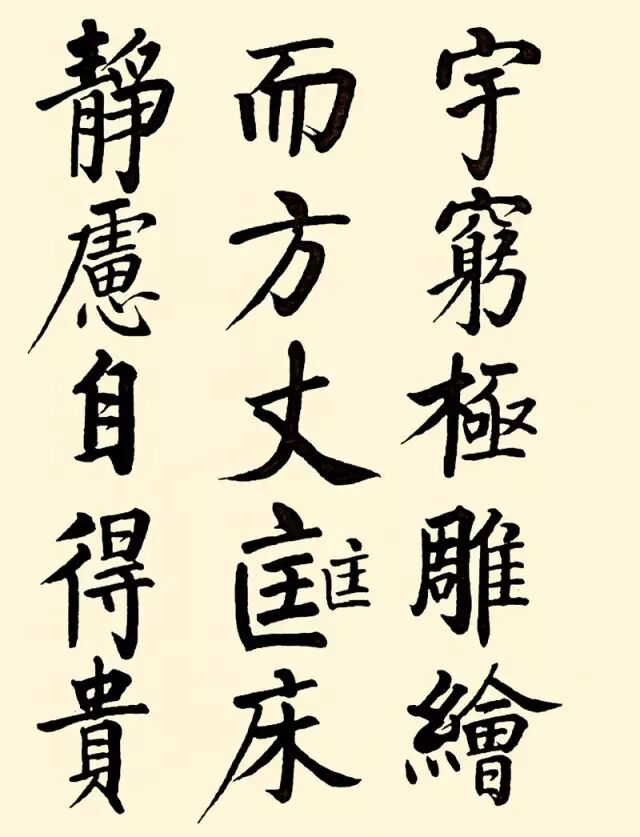 宇窮極雕繪
而方丈匡床
匡
靜慮自得貴